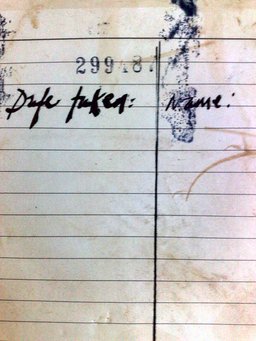 299.87
Date taken: Name: